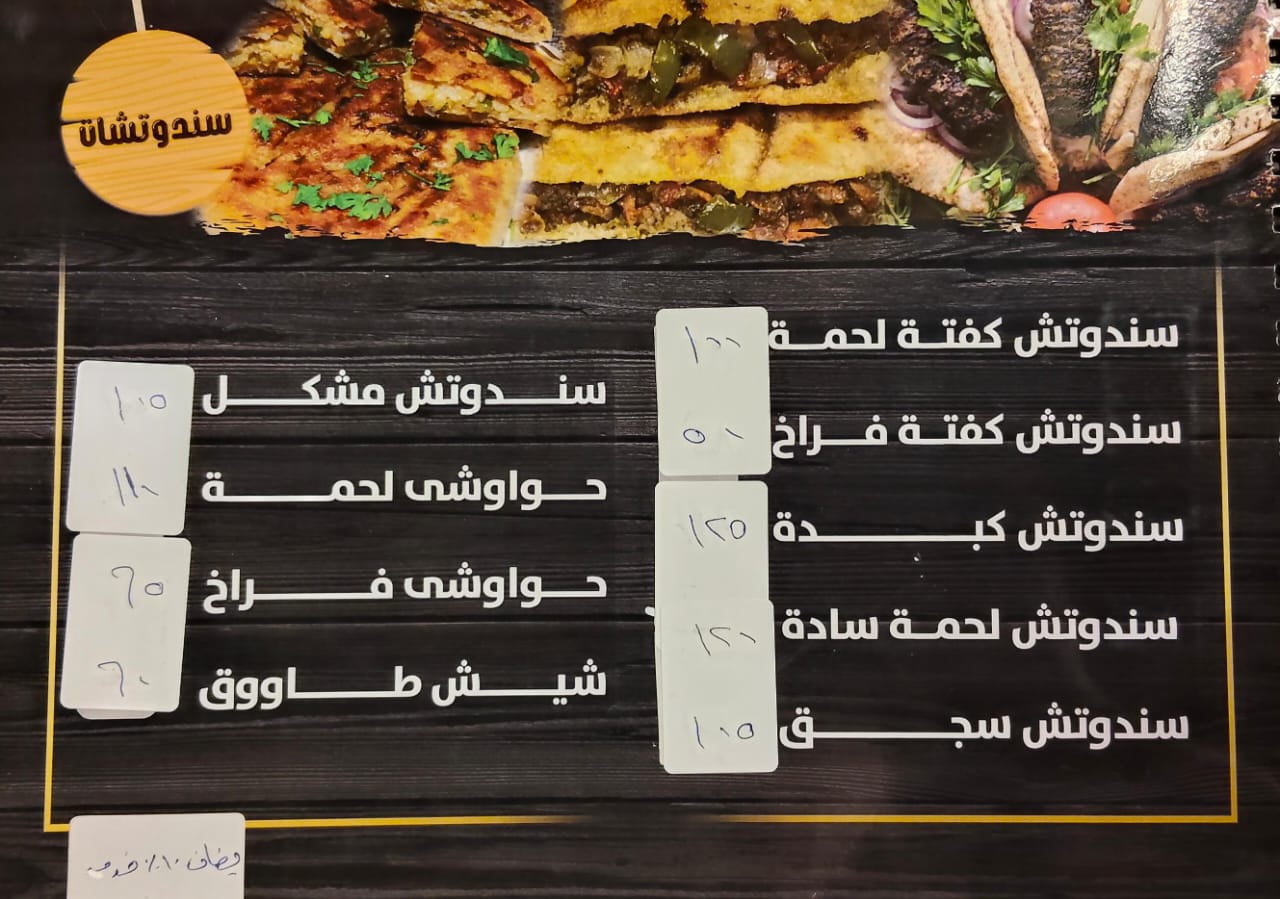 سندوتشات
سندوتش كفتة لحمة ١٠٠
سندوتش كفتة فراخ ٥٠
سندوتش كبدة ١٢٥
سندوتش لحمة سادة ١٢٠
سندوتش سجق ١٠٥
سندوتش مشكل ١٠٥
حواوشى لحمة ١١٠
حواوشى فراخ ٦٥
شيش طاووق ٦٠
يضاف ١٠٪ خدمه